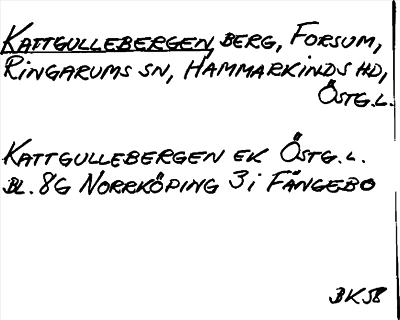 KATTGULLEBERGEN, BERG, FORSUM,
RINGARUMS SN, HAMMARKINDS HD,
ÖSTG.L.
KATTGULLEBERGEN EK ÖSTG.L.
BL. 8G NORRKÖPING 3i FÅNGEBO
BK58